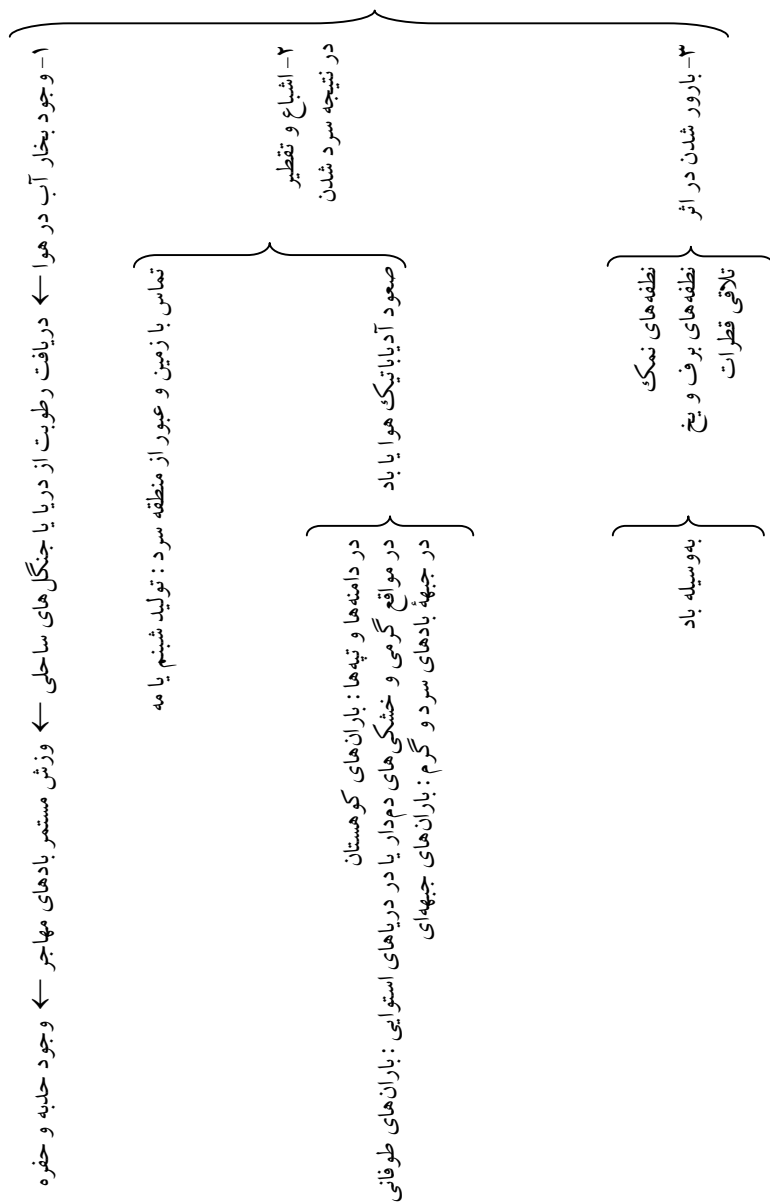 ۱- وجود بخار آب در هوا ← دریافت رطوبت از دریا یا جنگل‌های ساحلی ← وزش مستمر بادهای مهاجر ← وجود حدبه و حفره
۲- اشباع و تقطیر
در نتیجه سرد شدن
تماس با زمین و عبور از منطقه سرد : تولید شبنم یا مه
صعود آدیاباتیک هوا یا باد
در دامنه‌ها و تپه‌ها : باران‌های کوهستان
در مواقع گرمی و خشکی‌های دم‌دار یا در دریاهای استوایی : باران‌های طوفانی
در جبههٔ بادهای سرد و گرم : باران‌های جبهه‌ای
۳- بارور شدن در اثر
نطفه‌های نمک
نطفه‌های برف و یخ
تلاقی قطرات
به‌وسیله باد